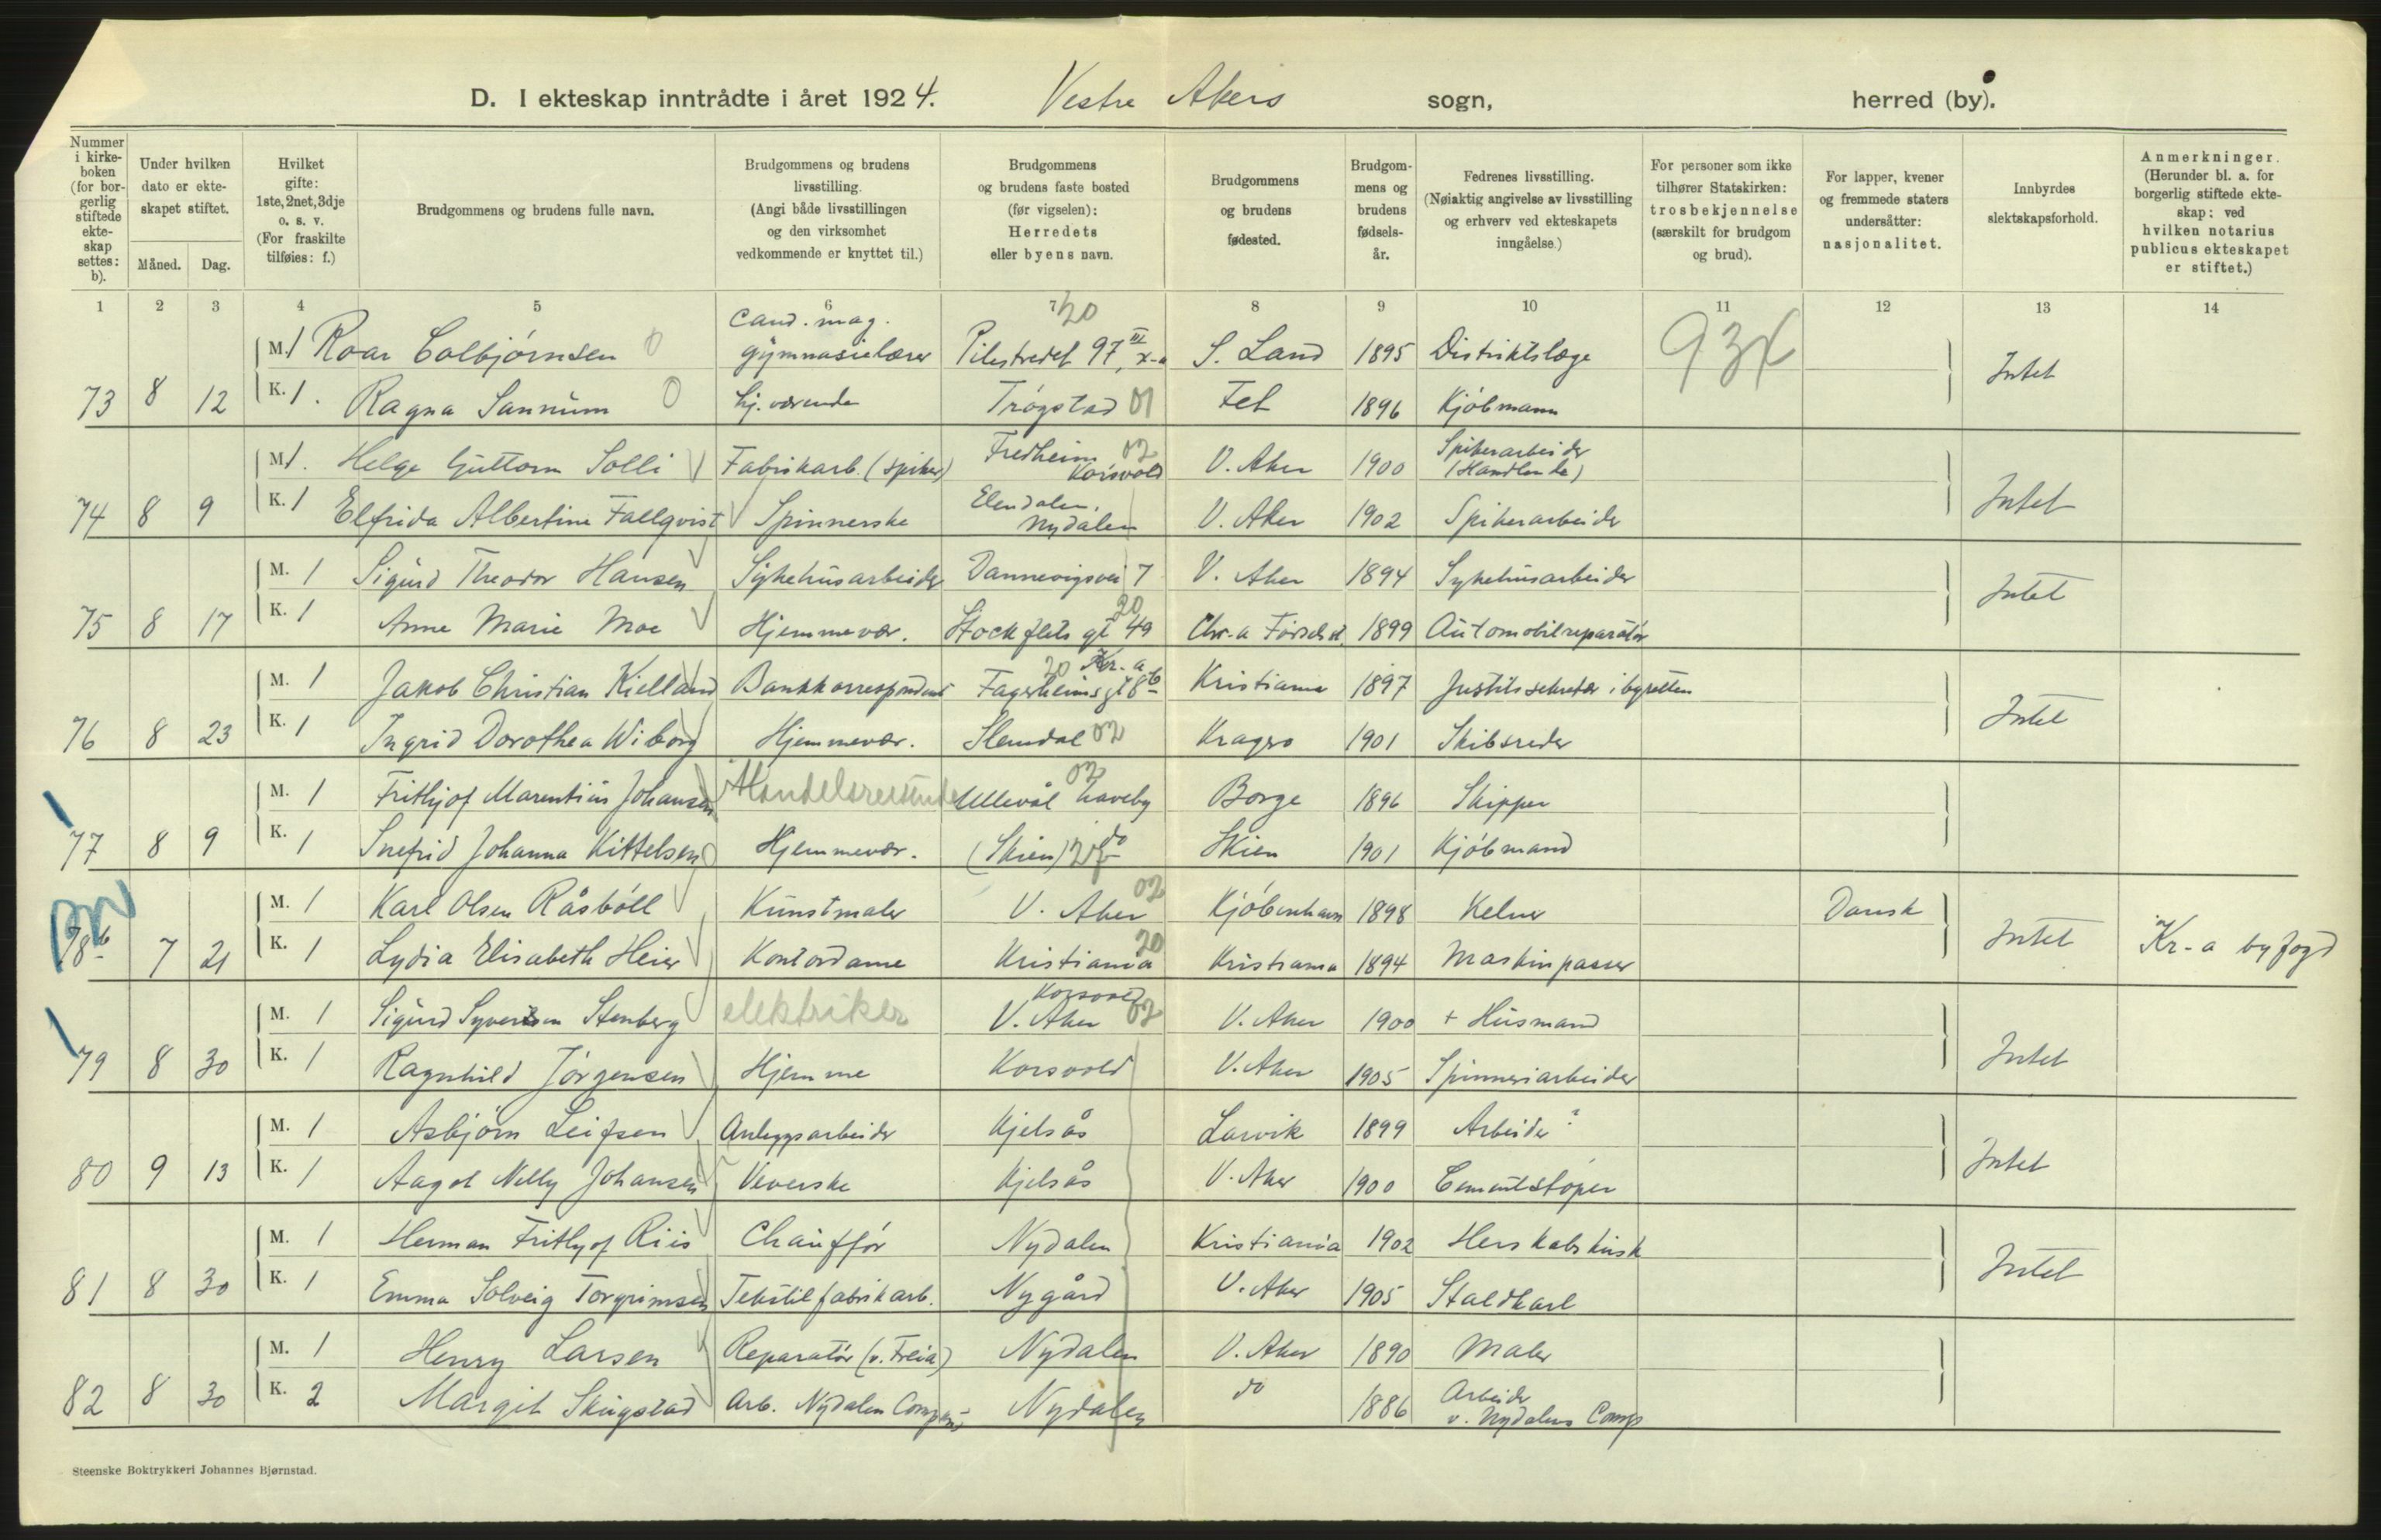 D. I ekteskap inntrådte i året 1924. Vestre Akers sogn, herred (by).
Nummer i kirke-boken (for bor-gerlig stiftede ekte-skap settes: b).
Under hvilken dato er ekte-skapet stiftet.
Måned. Dag.
Hvilket gifte: 1ste, 2net, 3dje o. s. v. (For fraskilte tilføies: f.)
Brudgommens og brudens fulle navn.
Brudgommens og brudens livsstilling. (Angi både livsstillingen og den virksomhet vedkommende er knyttet til.)
Brudgommens og brudens faste bosted (før vigselen): Herredets eller byens navn.
Brudgommens og brudens fødested.
Brudgom-mens og brudens fødsels-år.
Fedrenes livsstilling. (Nøiaktig angivelse av livsstilling og erhverv ved ekteskapets inngåelse.)
For personer som ikke tilhører Statskirken: trosbekjennelse (særskilt for brudgom og brud).
For lapper, kvener og fremmede staters undersåtter: nasjonalitet.
Innbyrdes slektskapsforhold.
Anmerkninger. (Herunder bl. a. for borgerlig stiftede ekte-skap: ved hvilken notarius publicus ekteskapet er stiftet.)
1 2 3 4 5 6 7 8 9 10 11 12 13 14
M. 1 Roar Colbjørnsen 0 Cand. mag. gymnasielærer Pilestredet 97 III, X-a 20 S. Land 1895 Distriktslæge 93X
73 8 12 K. 1. Ragna Sannum 0 hj. værende Trøgstad 01 Fet 1896 Kjøbmann Intet
M. 1. Helge Guttorm Solli Fabrikarb. (spiker) Fredheim Korsvold 02 V. Aker 1900 Spikerarbeider (Handlende)
74 8 9 K. 1 Elfrida Albertine Fallqvist Spinnerske Elendalen, Nydalen V. Aker 1902 Spikerarbeider Intet
M. 1 Sigurd Theodor Hansen Sykehusarbeider Dannevigsvei 7 V. Aker 1894 Sykehusarbeider
75 8 17 K. 1 Anne Marie Moe Hjemmevær. Stockflets gt 49 20 Chr.a Fødselsst. 1899 Automobilreparatør Intet
M. 1 Jakob Christian Kielland Bankkorrespondent Fagerheimsgt 8b Kr.a 20 Kristiania 1897 Justitssekretær i byretten
76 8 23 K. 1 Ingrid Dorothea Wiborg Hjemmevær. Slemdal 02 Kragerø 1901 Skibsreder Intet
M. 1 Frithjof Marentius Johansen Handelsreisende Ullevål haveby 02 Borge 1896 Skipper
77 8 9 K. 1 Snefrid Johanna Kittelsen Hjemmevær. (Skien) do Skien 1901 Kjøbmand
M. 1 Karl Olsen Råsbøll Kunstmaler V. Aker 02 Kjøbenhavn 1898 Kelner Dansk
78b 7 21 K. 1 Lydia Elisabeth Heier Kontordame Kristiania 20 Kristiania 1894 Maskinpasser Intet Kr-a byfogd
M. 1 Sigurd Syversen Stenberg elektriker Korsvold V. Aker 02 V. Aker 1900 + Husmand
79 8 30 K. 1 Ragnhild Jørgensen Hjemme Korsvold V. Aker 1905 Spinneriarbeider Intet
M. 1 Asbjørn Leifsen Anleggsarbeider Kjelsås Larvik 1899 Arbeider ?
80 9 13 K. 1 Aagot Nelly Johansen Veverske Kjelsås V. Aker 1900 Cementstøper Intet
M. 1 Herman Frithjof Riis Chauffør Nydalen Kristiania 1902 Herskabskusk
81 8 30 K. 1 Emma Solveig Torgrimsen Tekstilfabrikarb. Nygård V. Aker 1905 Staldkarl Intet
M. 1 Henry Larsen Reparatør (v. Freia) Nydalen V. Aker 1890 Maler
82 8 30 K. 2 Margit Skugstad Arb. Nydalen Compani Nydalen do 1886 Arbeider v. Nydalens Comp
Steenske Boktrykkeri Johannes Bjørnstad.